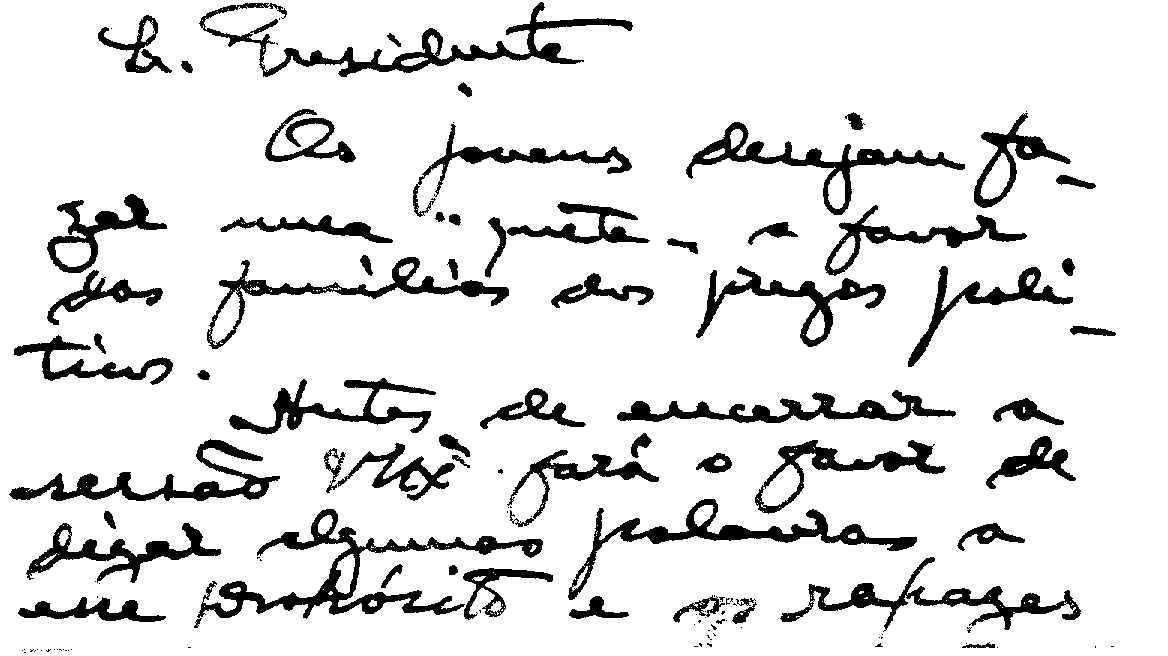 Sr. Presidente
Os jovens desejam fa-
zer uma "quete" a favor
das familias dos presos poli-
ticos.
Antes de encerrar a
sessão V. Exª fará o favor de
dizer algumas palavras a
esse propósito e os rapazes